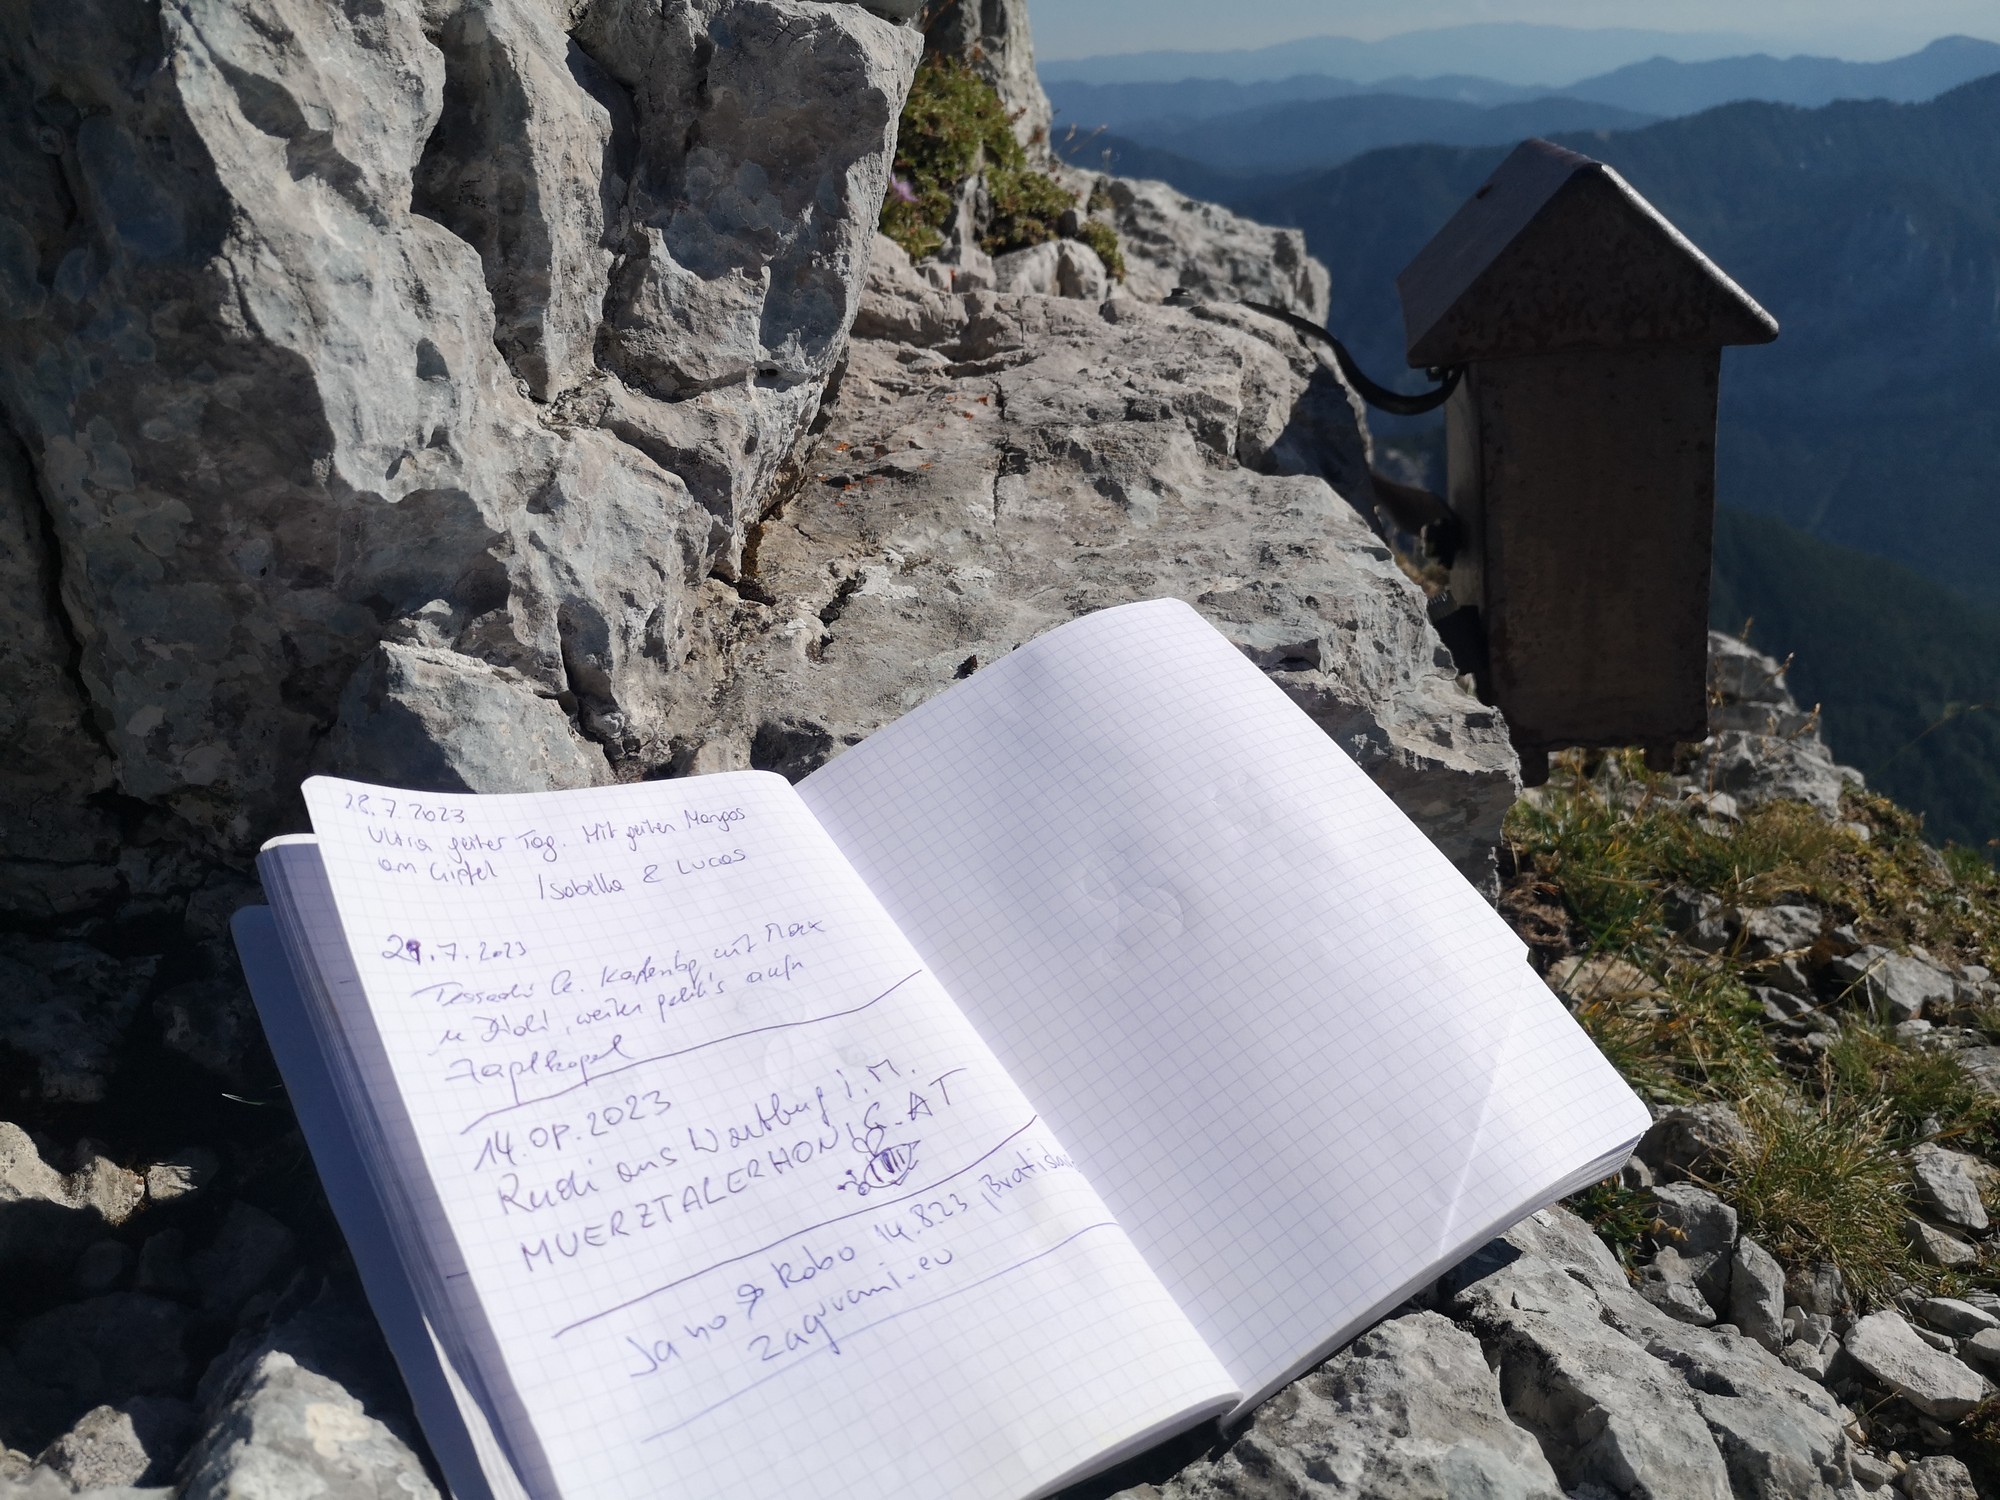 28.7.2023
Ultra geiler Tag. Mit geilen Mangos
am Gipfel
Isabella & Lucas
29.7.2023
Kapfenbg mit Max
weiter geht's aufn
14.08.2023
Rudi aus Wartburg I.M.
MUERZTALERHONIG.AT
Jano & Robo 14.8.23
zagurami.eu